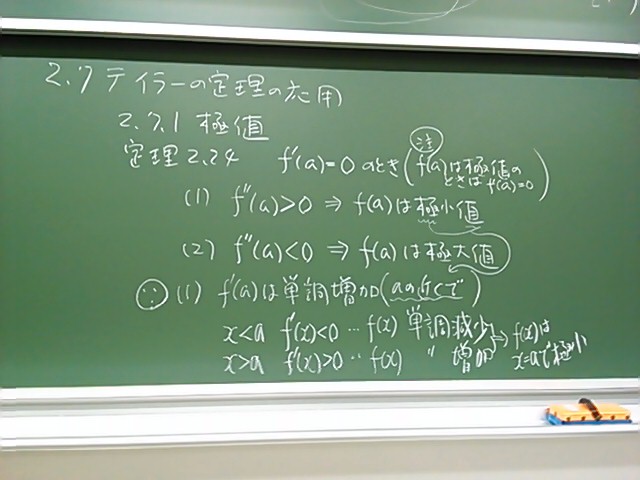 2.7 テイラーの定理の応用
2.7.1 極値
定理2.24 f'(a)=0 のとき (注 f(a)は極値の
ときは f'(a)=0)
(1) f''(a)>0 ⇒ f(a)は極小値
(2) f''(a)<0 ⇒ f(a)は極大値
∵ (1) f'(a)は単調増加(aの近くで)
x<a f'(x)<0 … f(x) 単調減少 ⇒ f(x)は
x>a f'(x)>0 … f(x) 〃 増加 x=aで極小